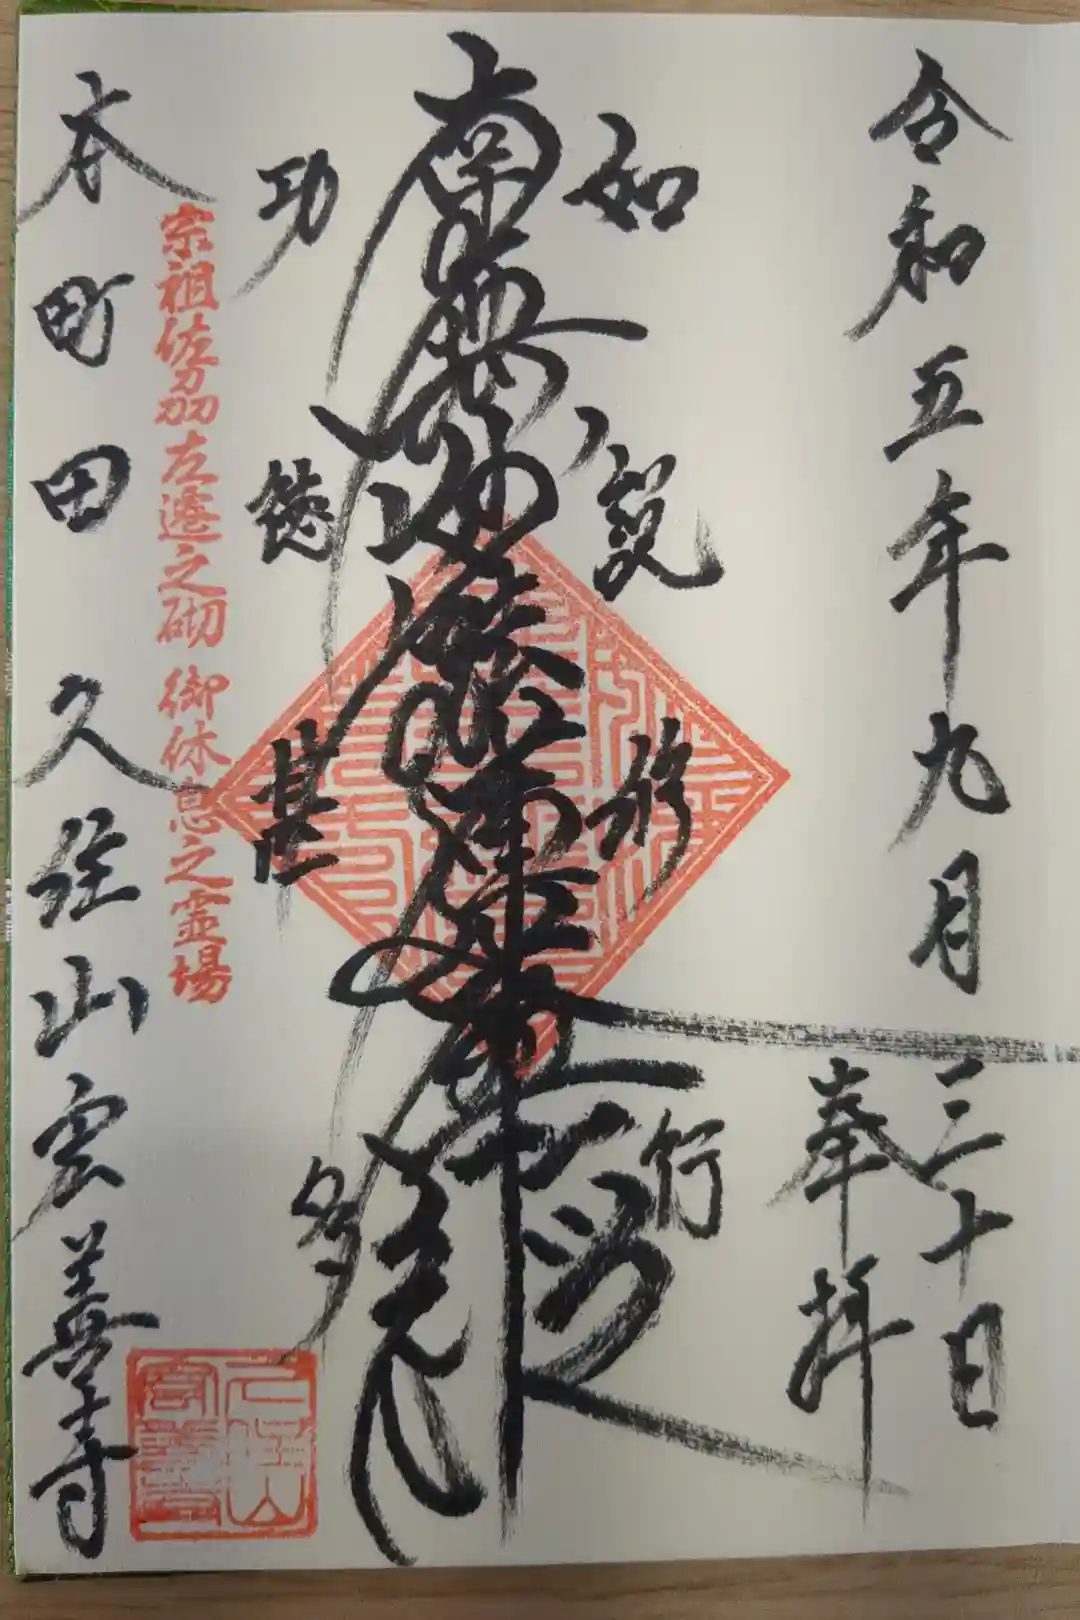 令和五年九月三十日
奉拝
如説修行
南無妙法蓮華経
功徳甚多
宗祖佐刕左遷之砌 御休息之霊場
本町田 久住山宏善寺
久住山
宏善寺